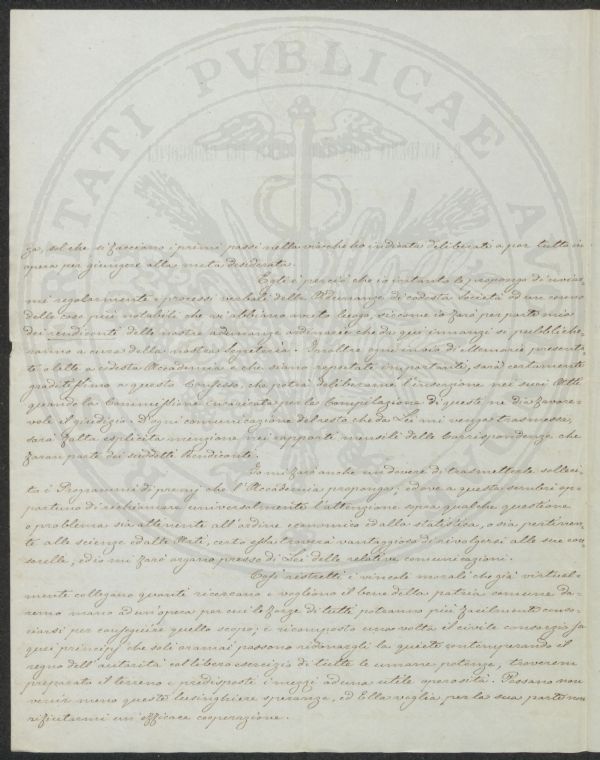 PROSPERITATI PVBLICAE AV
za, sol che si facciano i primi passi nella via che ho indicata deliberati a por tutto in
opera per giungere alla meta desiderata.
Egli è perciò che io intanto le propongo d'inviar-
mi regolarmente i processi verbali delle Adunanze di codesta Società ed un cenno
delle cose più notabili che vi abbiano avuto luogo, siccome io farò per parte mia
dei rendiconti delle nostre adunanze ordinarie che da qui innanzi si pubbliche-
ranno a cura della nostra Segreteria. Inoltre ogni invio di Memorie presenta-
te o lette a codesta Accademia e che siano reputate importanti, sarà certamente
graditissimo a questo Consesso, che potrà deliberarne l'inserzione nei suoi Atti
quando la Commissione incaricata per la Compilazione di questi ne dia favore-
vole il giudizio. D'ogni comunicazione del resto che da Lei mi venga trasmessa,
sarà fatta esplicita menzione nei rapporti mensili delle Corrispondenze che
faran parte dei suddetti Rendiconti.
Io mi farò anche un dovere di trasmetterle solleci-
ta i Programmi di premj che l'Accademia proponga; ed ove a questa sembri op-
portuno di richiamare universalmente l'attenzione sopra qualche questione
o problema sia attinente all'ordine economico o alla statistica, o sia pertinen-
te alle scienze o alle Arti, certo essa troverà vantaggioso di rivolgersi alle sue con-
sorelle, ed io mi farò organo presso di Lei delle relative comunicazioni.
Così ristretti i vincoli morali che già virtual-
mente collegano quanti ricercano e vogliono il bene della patria comune da-
remo mano ad un'opera per cui le forze di tutti potranno più facilmente conso-
ciarsi per conseguire quello scopo; e ricomposto una volta il civile consorzio su
quei principj che soli oramai possono ridonargli la quiete contemperando il
regno dell'autorità col libero esercizio di tutte le umane potenze, troveremo
preparato il terreno e predisposti i mezzi ad una utile operosità. Possano non
venir meno queste lusinghiere speranze, ed Ella voglia per la sua parte non
rifiutarmi un'efficace cooperazione.